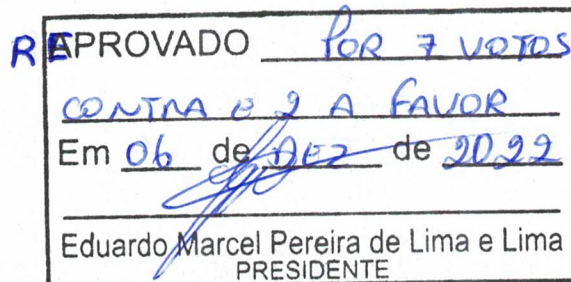 REAPROVADO POR 7 VOTOS
CONTRA E 2 A FAVOR
Em 06 de DEZ de 2022
Eduardo Marcel Pereira de Lima e Lima
PRESIDENTE